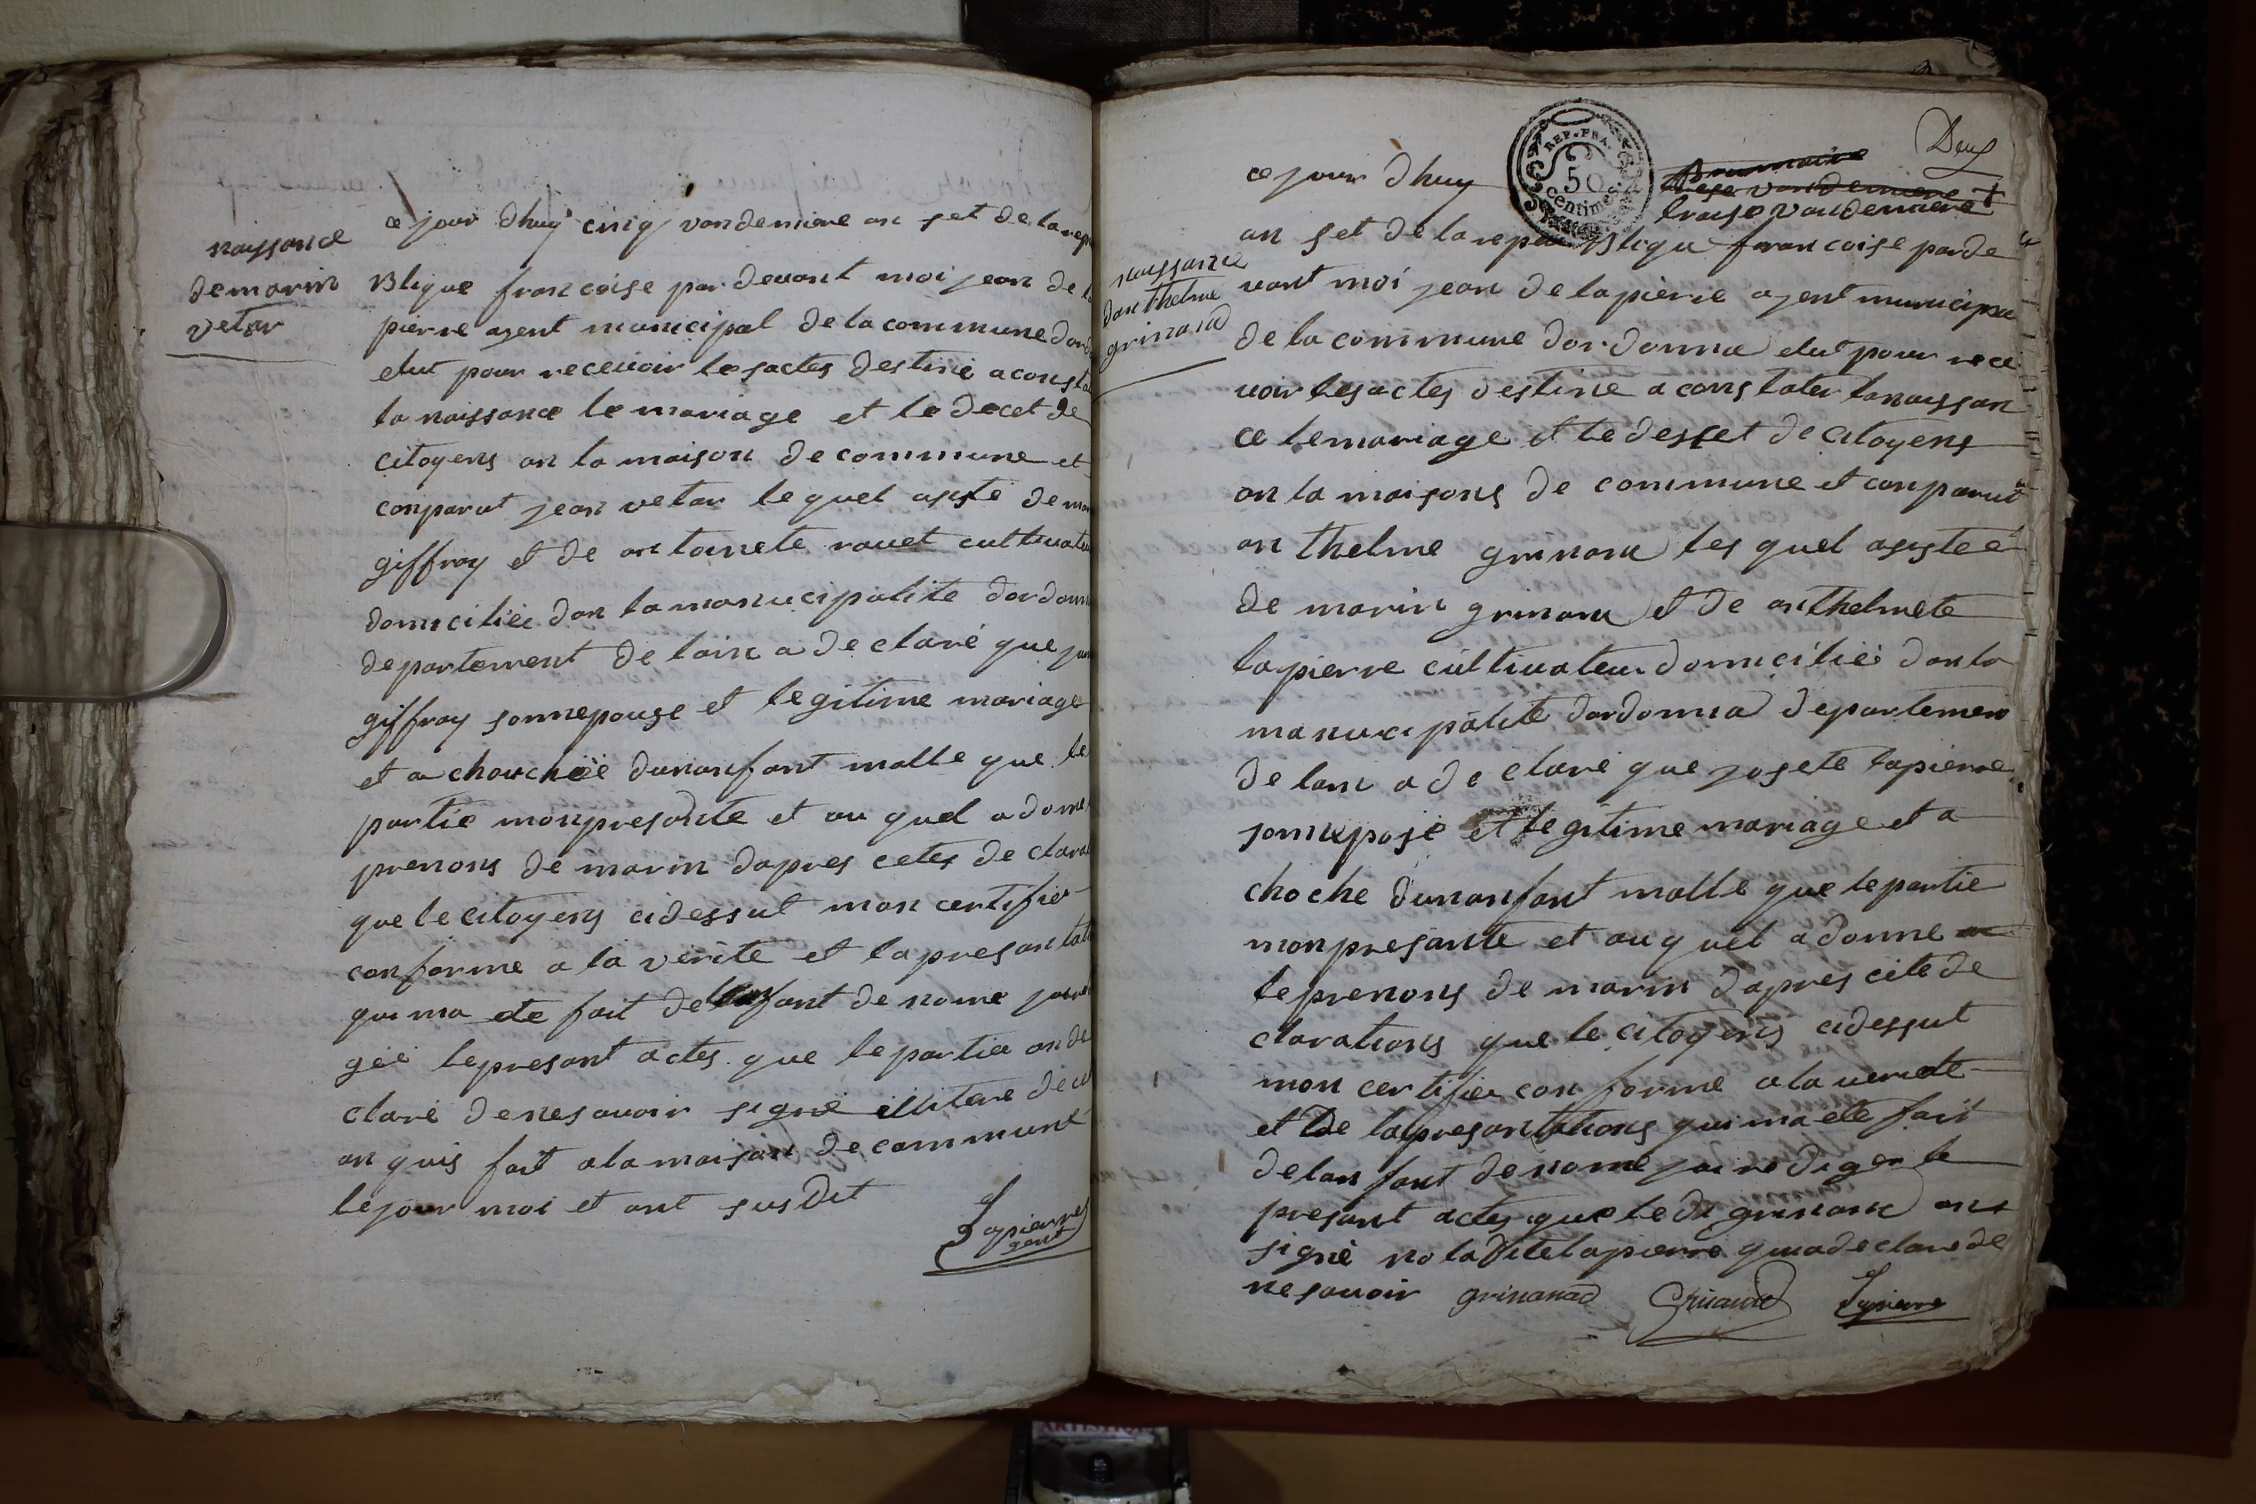 naissance
de marin
vetar
ce jour dhuy cinq vandemiere an set de la repu
blique francoise par devant moi jean de la
pierre agent municipal de la commune dordo
elut pour recevoir les actes destiné a consta
la naissance le mariage et le decet de
citoyens an la maison de commune et
conparut jean vetar le quel asisté de mar
giffray et de antoinete rauet cultivateu
domicilieé dan la manucipalite dordonna
departement de lain a declaré que
giffray sonnepouse et legitime mariage
et a chouchéé dunanfant malle que le
partie monpresante et au quel a donne
prenons de marin dapres cetes declara
que le citoyens cidessut mon certifié
conforme a la verite et la presantati
qui ma ete fait de lanfant de nomé
geé lepresant actes que le partie on de
claré denesavoir signé illitere de ce
an quis fait a la maison de commune
le jour moi et ant susdit
Lapierre
agent
Deux
REP. FRA.
50
centimes
ce jour dhuy
traise vandemiere
an set de la republique francoise parde
vant moi jean delapierre agent municipa
de la commune dordonna elut pour rece
voir les actes destine a constater la naissan
ce le mariage et le desset de citoyens
an la maisons de commune et conparut
naissance
danthelme
grinand
anthelme grinand les quel asisteé
de marin grinand et de anthelmete
lapierre cultivateur domicilieé dan la
manucipalité dordonna departemen
de lain a declaré que josete lapierre
sonnepose et legitime mariage et a
choche dunanfant malle que lepartie
monpresante et au quel a donne
le prenons de marin dapres cete de
clarations que le citoyens cidessut
mon certifier conforme a la verite
et de lapresantations qui ma ete fait
de lanfant de nomé jai rediger le
presant actes que le dit grinand ans
signé no ladite lapierre qui a declare de
ne savoir grinanad Grinand Lapierre